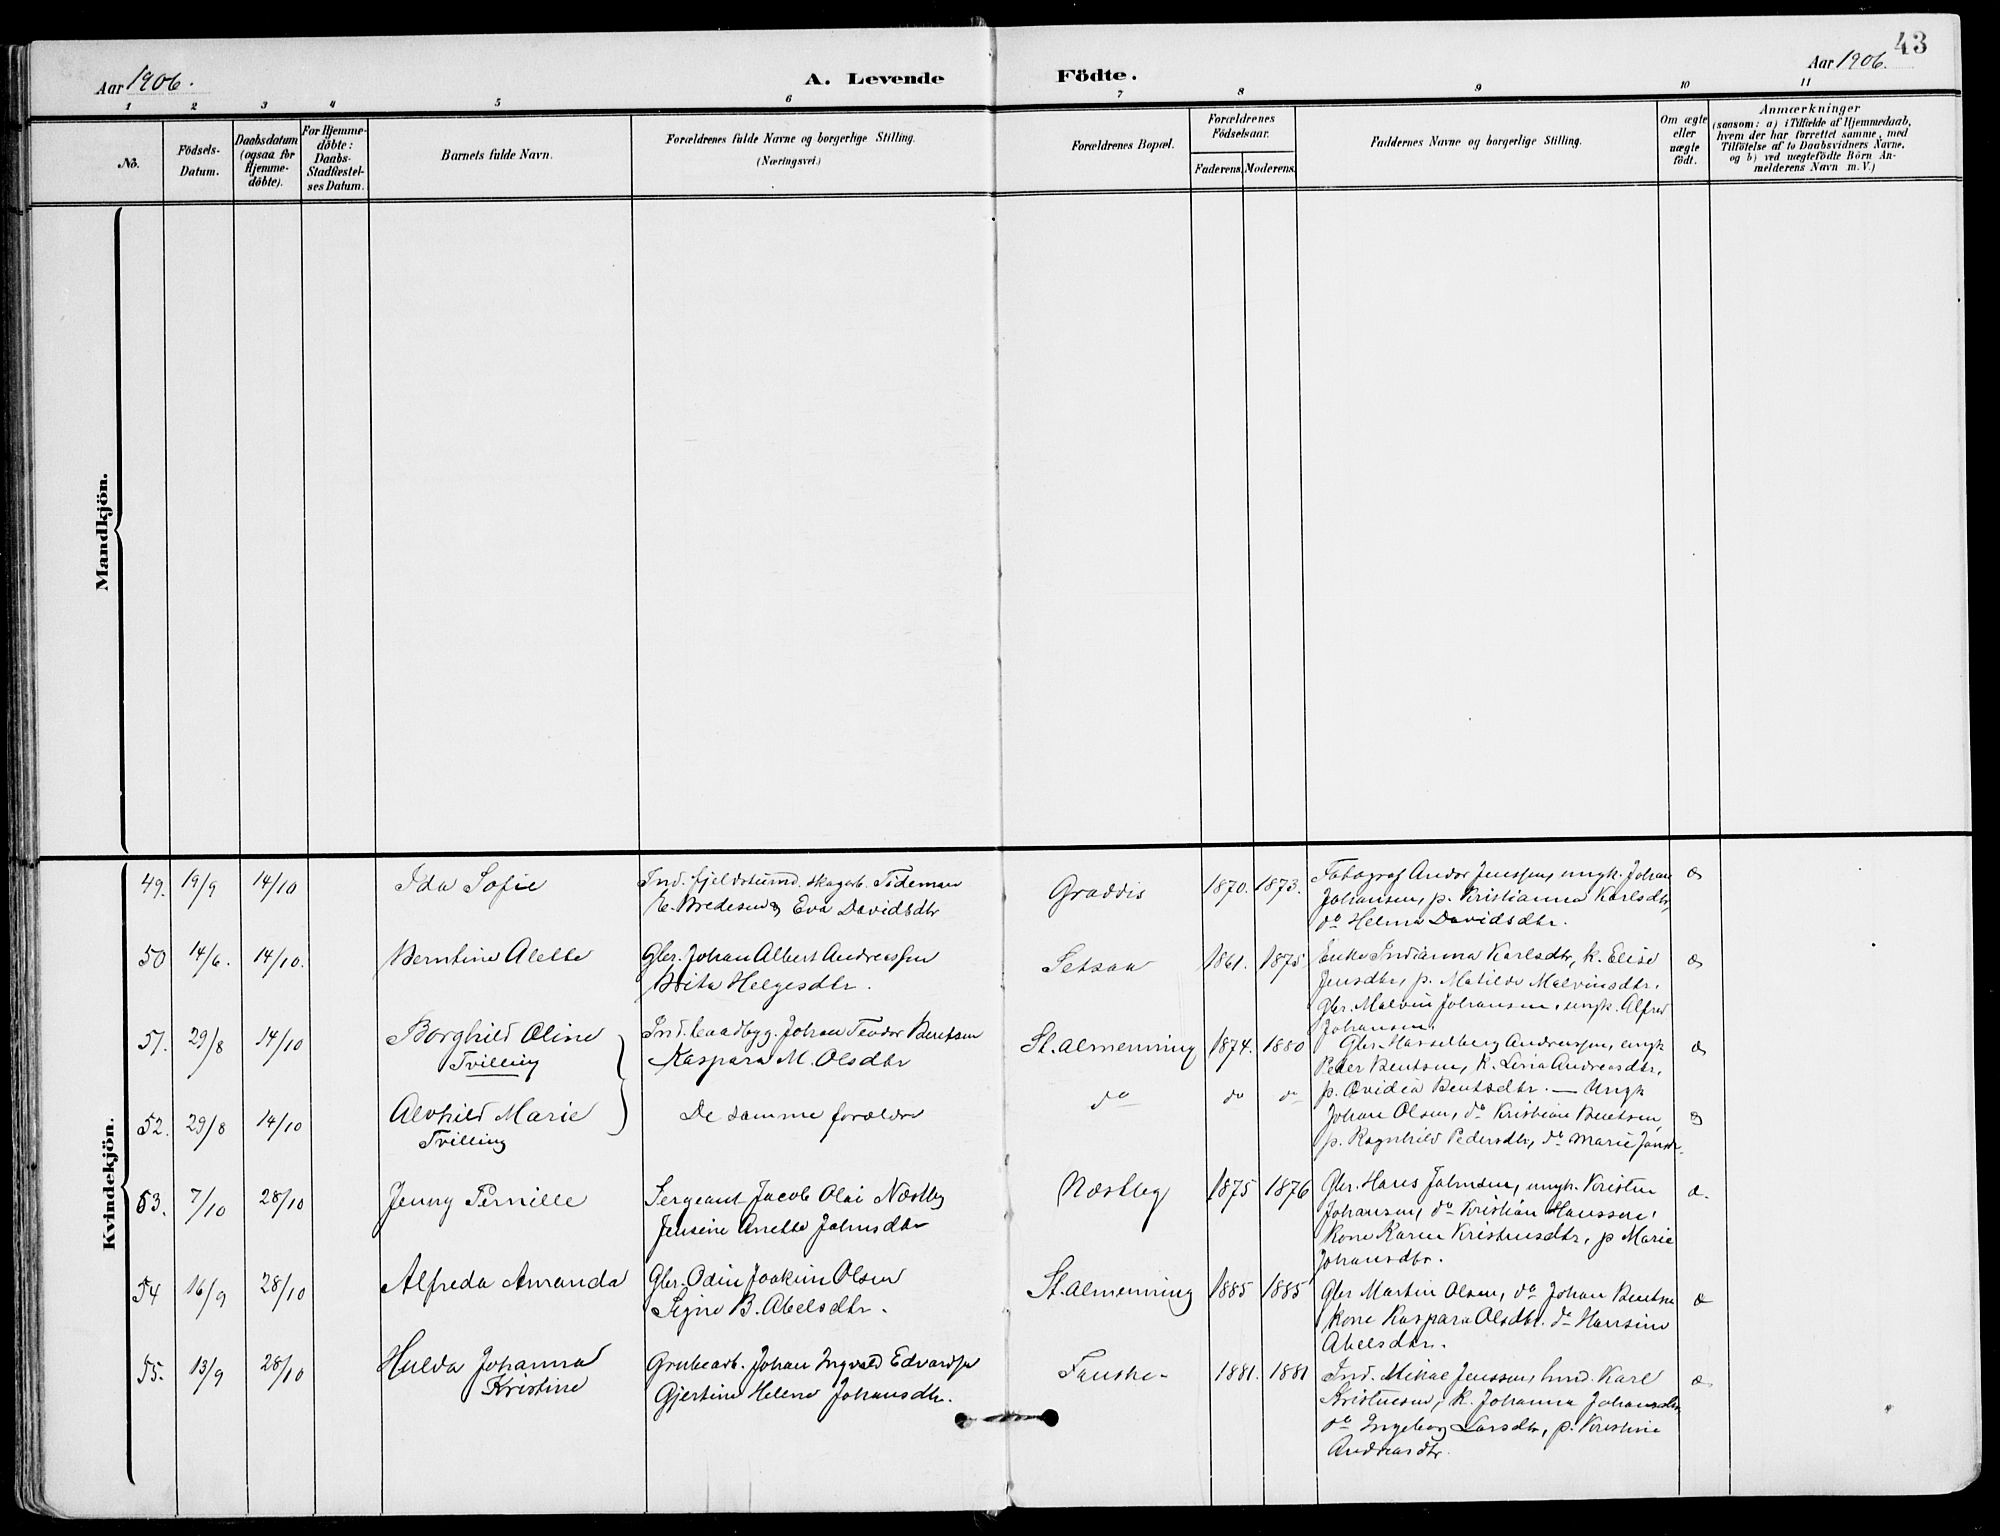 43
Aar 1906.
A. Levende Födte.
Aar 1906.
1 2 3 4 5 6 7 8 9 10 11
No.
Födsels-
Datum.
Daabsdatum
(ogsaa for
Hjemme-
döbte).
For Hjemme-
döbte:
Daabs-
Stadfæstel-
ses Datum.
Barnets fulde Navn.
Forældrenes fulde Navne og borgerlige Stilling.
(Næringsvei.)
Forældrenes Bopæl.
Forældrenes
Födselsaar.
Faderens. Moderens.
Faddernes Navne og borgerlige Stilling.
Om ægte
eller
uægte
födt.
Anmærkninger
(saasom: a) i Tilfælde af Hjemmedaab,
hvem der har forrettet samme, med
Tilföielse af to Daabsvidners Navne,
og b) ved uægtefödte Börn An-
melderens Navn m. V.)
Mandkjön.
Kvindekjön.
49. 19/9 14/10 Ida Sofie
Ind. fjeldstuemd. skogarb. Tideman
E. Bredesen & Eva Davidsdtr
Graddis 1870. 1873.
Fotograf Andor Jenssen, ungk. Johan
Johansen, p. Kristianna Karlsdtr,
do Helma Davidsdtr.
æ
50 14/6. 14/10. Berntine Alette
Gbr. Johan Albert Andreassen
Brita Helgesdtr.
Setsaa 1861. 1875
Enke Indianna Karlsdtr, k. Elise
Jensdtr, p. Matilde Malvinsdtr.
Gbr. Malvin Johansen, ungk. Alfred
Johansen.
æ
51. 29/8 14/10 Borghild Oline
Tvilling
Ind. baadbyg. Johan Teodor Bentsen
Kaspara M. Olsdtr
St. almenning 1874. 1880
Gbr. Hasselberg Andreassen, ungk
Peder Bentsen, k. Lina Andreasdtr,
p. Ovidia Bentsdtr. — Ungk
æ
52. 29/8 14/10 Alvhild Marie
Tvilling
De samme forældre
do do do
Johan Olsen, do Kristian Bentsen,
p. Ragnhild Pedersdtr, do Marie Jansdtr.
æ
53. 7/10 28/10 Jenny Pernille
Sergeant Jacob Olai Næstby
Jensine Anette Jahnsdtr
Næstby 1875 1876
Gbr. Hans Jahnsen, ungk. Kristen
Johansen, do Kristian Hanssen,
Kone Karen Kristensdtr, p Marie
Johansdtr.
æ.
54 16/9 28/10 Alfreda Amanda
Gbr. Odin Joakim Olsen
Signe B. Abelsdtr.
St. almenning 1885 1885
Gbr Martin Olsen, do Johan Bentsen
kone Kaspara Olsdtr. do Hansine
Abelsdtr.
æ
55. 13/9 28/10 Hulda Johanna
Kristine
Grubearb. Johan Ingvald Edvardsen
Gjertine Helene Johansdtr.
Fauske 1881. 1881
Ind. Mikal Jenssen, Ind. Karl
Kristensen, k. Johanna Johansdtr
do Ingeborg Larsdtr, p. Kristine
Andreasdtr.
æ